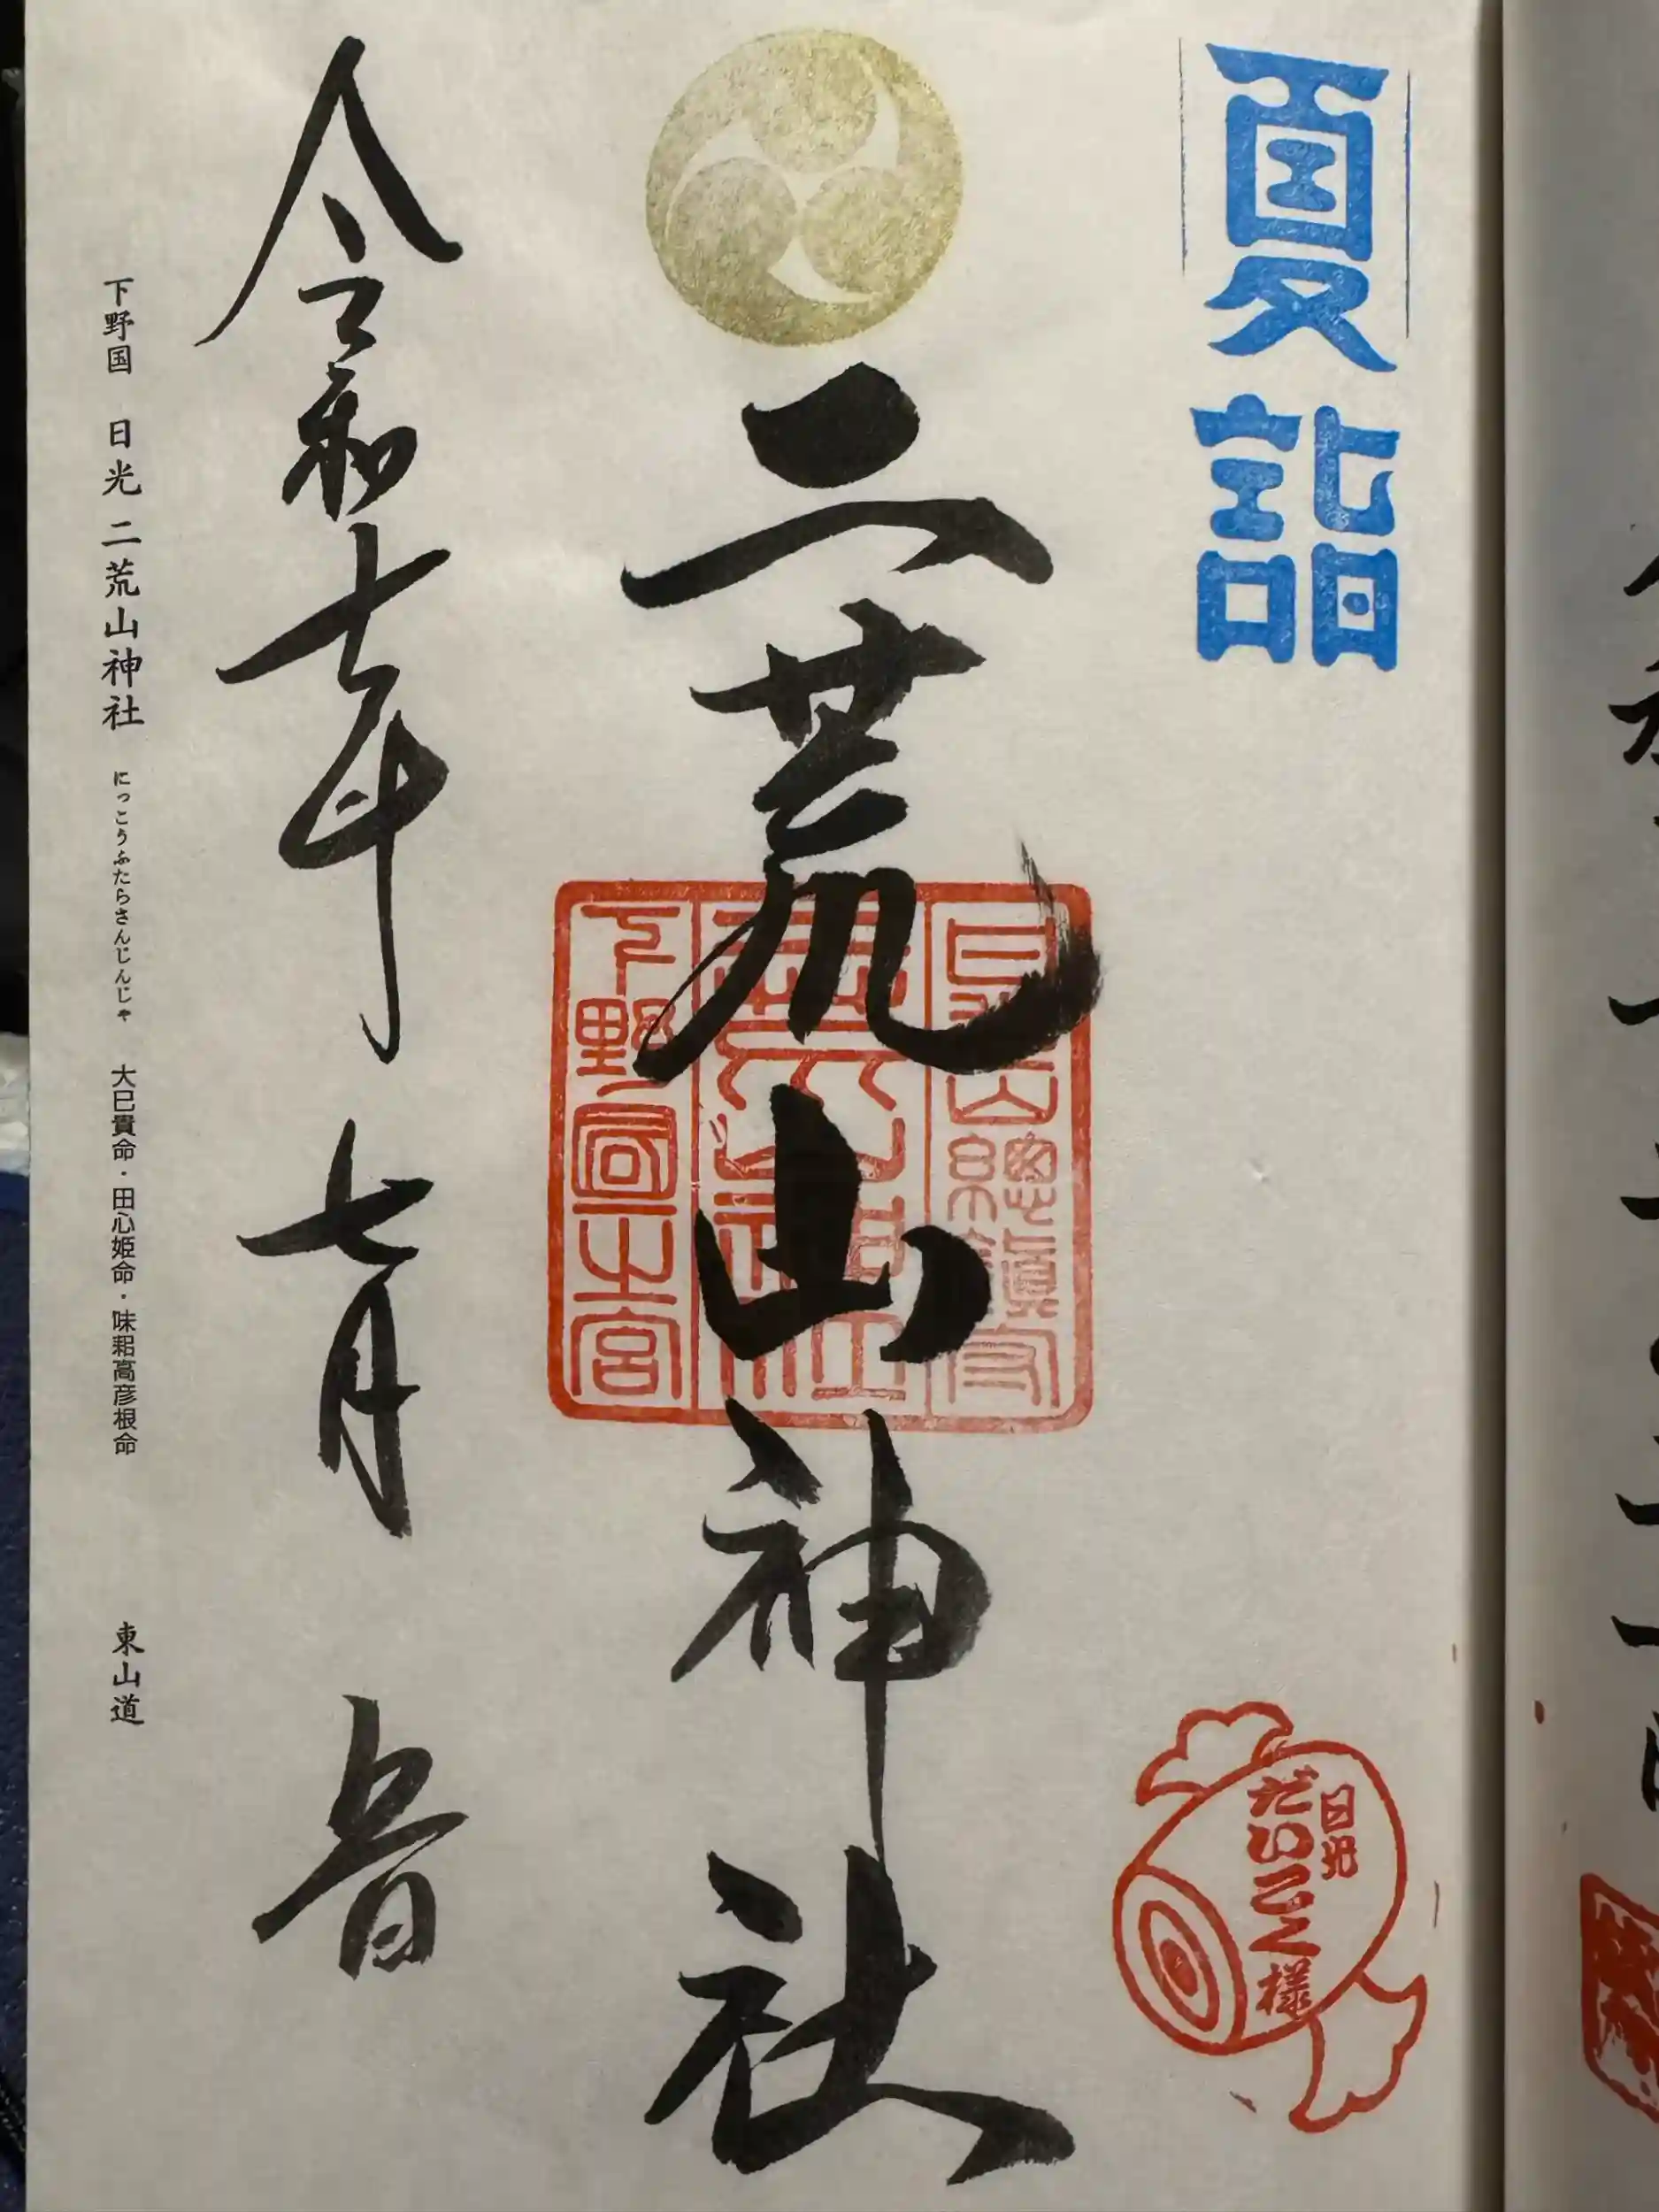 夏詣
日光
だいこく様
二荒山神社
日光山總鎮守
二荒山神社
下野國一之宮
令和七年 七月
下野国 日光 二荒山神社 にっこうふたらさんじんじゃ 大巳貴命・田心姫命・味耜高彦根命 東山道